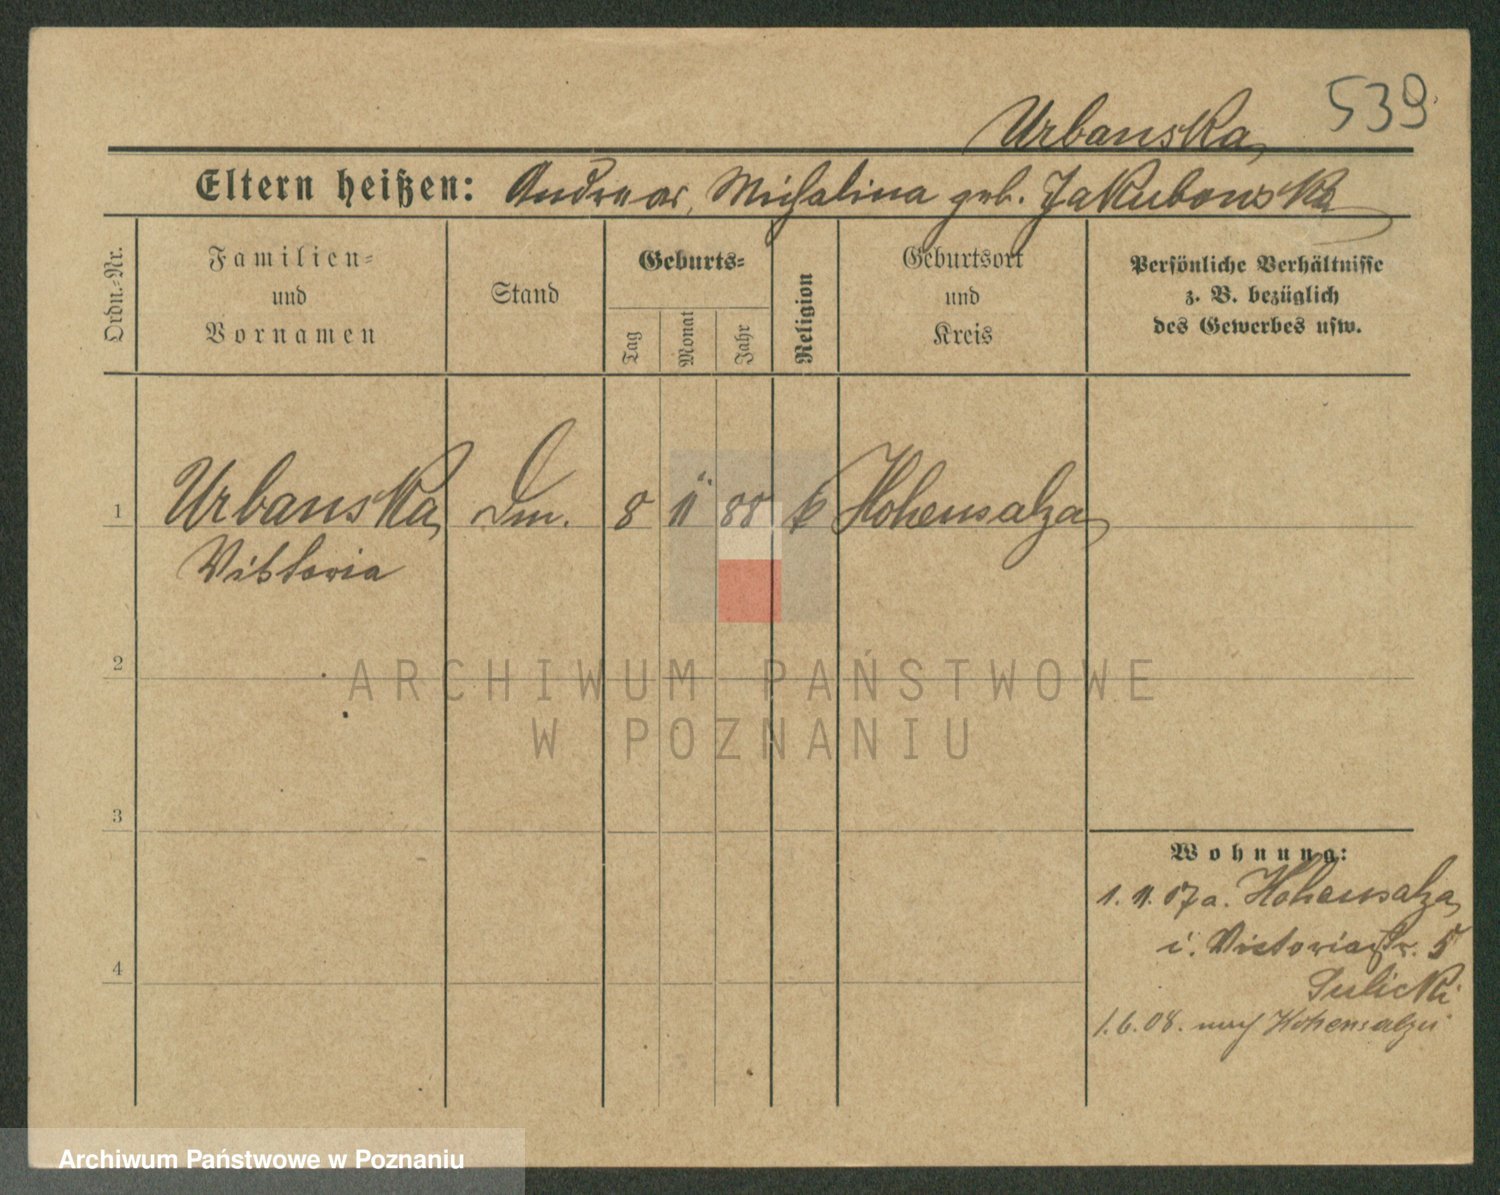 539
Urbanska
Eltern heißen: Andreas, Michalina geb. Jakubowska
Ordn.-Nr.
Familien-
und
Vornamen
Stand
Geburts-
Tag
Monat
Jahr
Religion
Geburtsort
und
Kreis
Persönliche Verhältnisse
z. B. bezüglich
des Gewerbes usw.
1 Urbanska 8 11 88 k Hohensalza
Viktoria
2
ARCHIWUM PAŃSTWOWE
W POZNANIU
3
Wohnung:
1. 11. 07 a. Hohensalza
i. Victoriastr. 5
4
Sulicki
1.6.08. nach Hohensalza
Archiwum Państwowe w Poznaniu